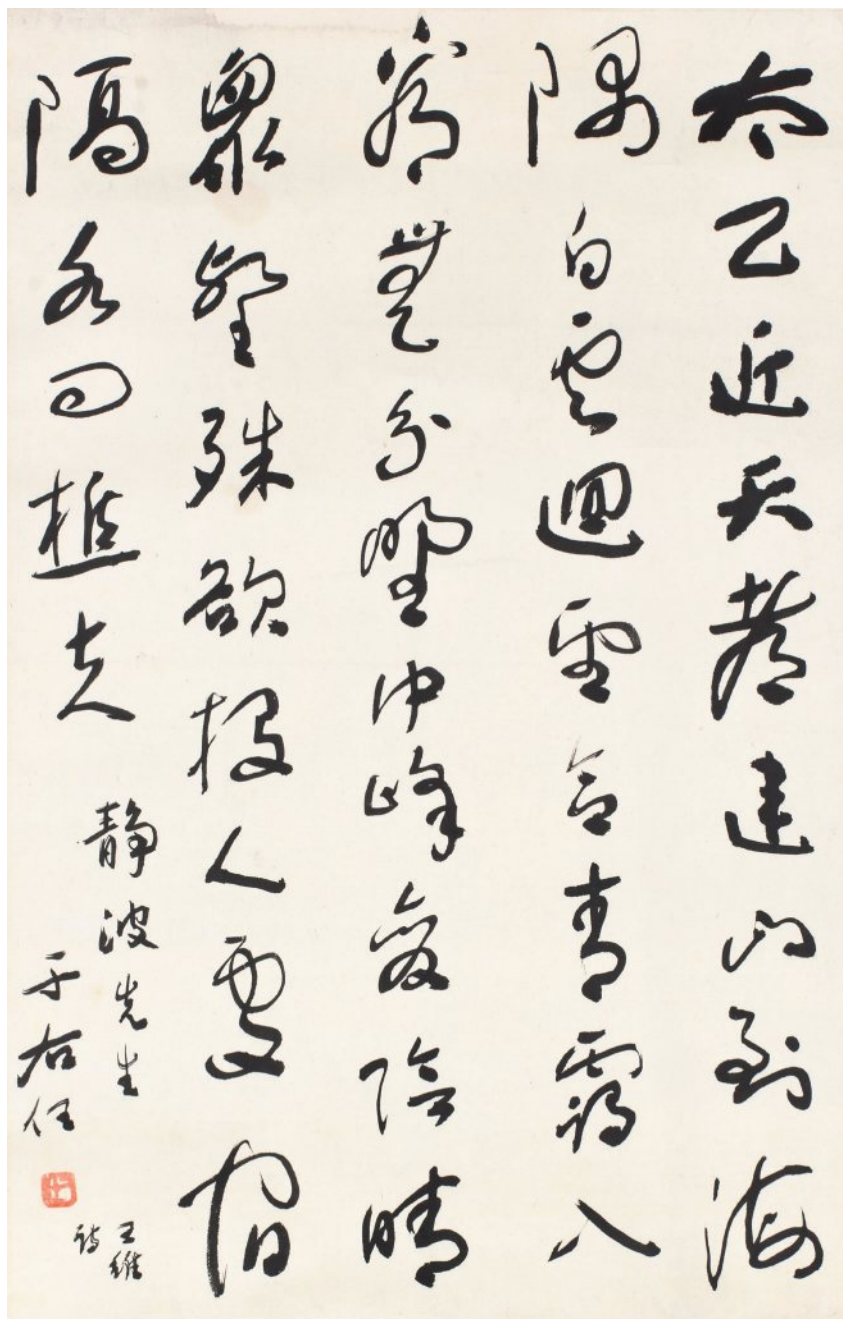 太乙近天都連山到海
隅白雲迴望合青靄入
看無分野中峰變陰晴
眾壑殊欲投人處宿
隔水問樵夫
靜波先生
于右任
王維
詩